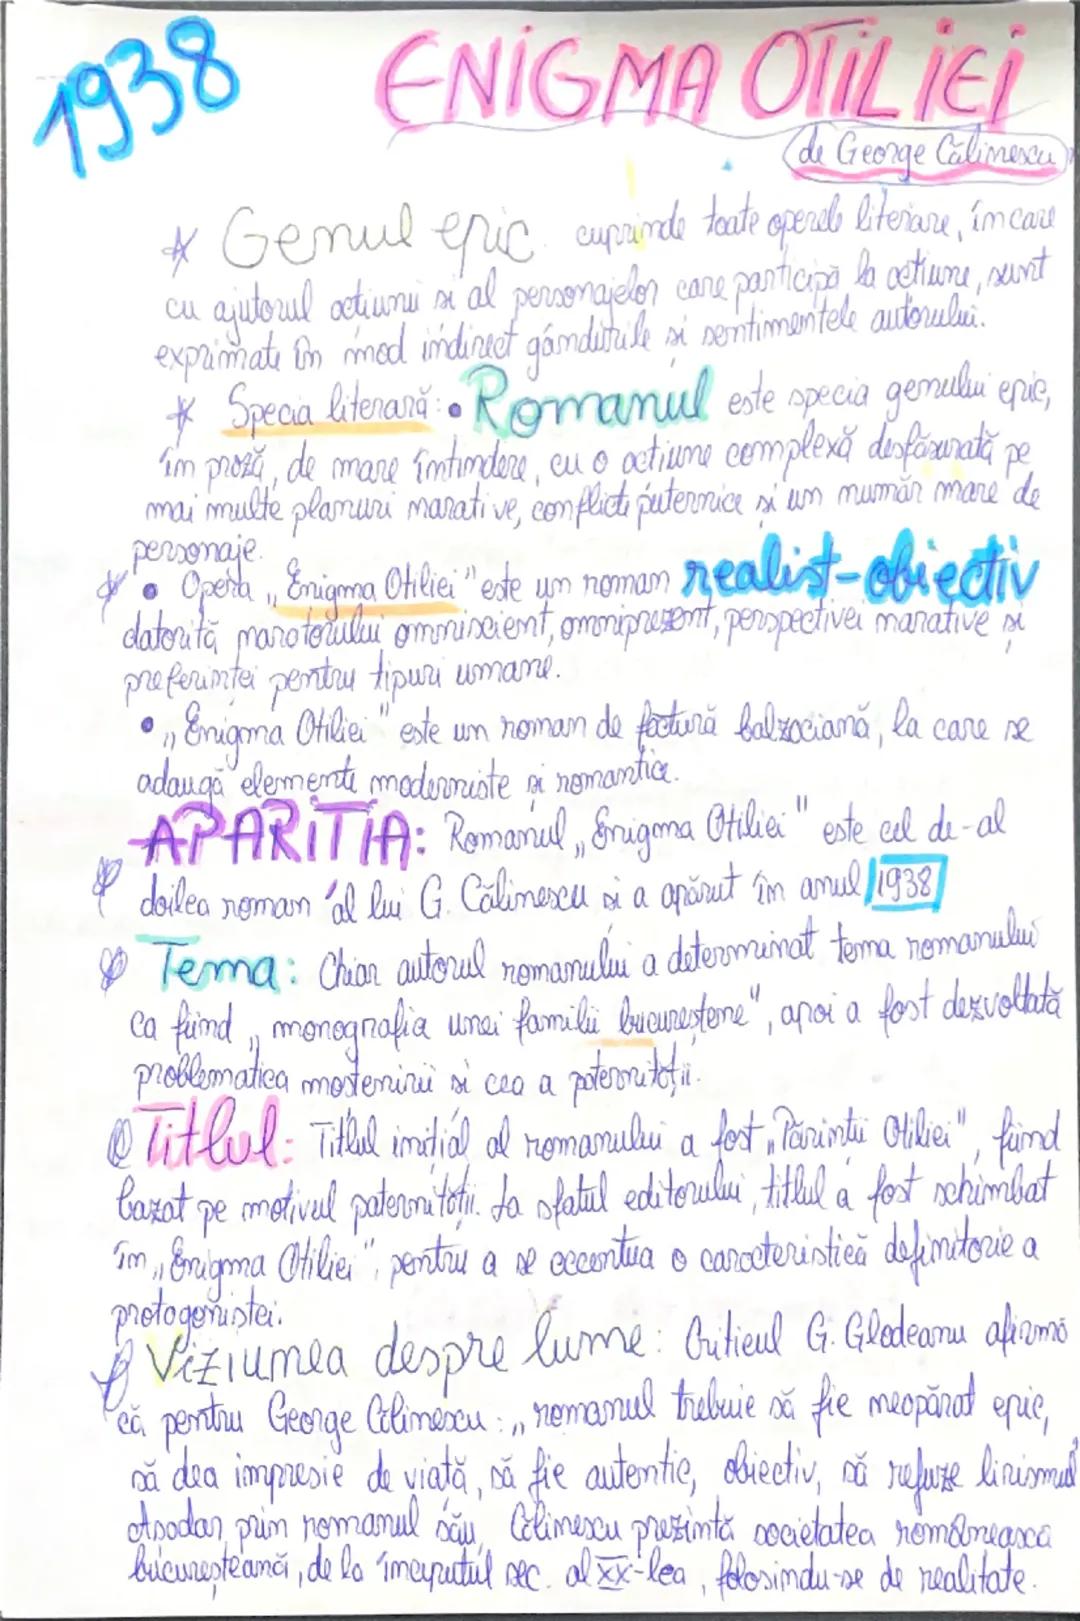 1938
ENIGMA OTILIEI
de George Călinescu
Genul epic cuprinde toate operele literare, în care
cu ajutorul acțiunii și al personajelor care participă la acțiune, sunt
exprimate în mod indirect gândurile și sentimentele autorului.
Specia literară: • Romanul este specia genului epic,
în proză, de mare întindere, cu o acțiune complexă desfășurată pe
mai multe planuri narative, conflicte puternice și un număr mare de
personaje.
• Opera „Enigma Otiliei" este un roman realist-obiectiv
datorită naratorului omniscient, omniprezent, perspectivei narative și
preferinței pentru tipuri umane.
• „Enigma Otiliei" este un roman de factură balzaciană, la care se
adaugă elemente moderniste și romantice.
APARIȚIA: Romanul „Enigma Otiliei" este cel de-al
doilea roman al lui G. Călinescu și a apărut în anul 1938
Tema: Chiar autorul romanului a determinat tema romanului
ca fiind „monografia unei familii bucureștene", apoi a fost dezvoltată
problematica moștenirii și cea a paternității.
Titlul: Titlul inițial al romanului a fost „Părinții Otiliei", fiind
bazat pe motivul paternității. La sfatul editorului, titlul a fost schimbat
în „Enigma Otiliei", pentru a se accentua o caracteristică definitorie a
protagonistei.
Viziunea despre lume: Criticul G. Glodeanu afirmă
că pentru George Călinescu: „romanul trebuie să fie neapărat epic,
să dea impresie de viață, să fie autentic, obiectiv, să refuze lirismul"
Așadar, prin romanul său, Călinescu prezintă societatea românească
bucureșteană, de la începutul sec. al XX-lea, folosindu-se de realitate.